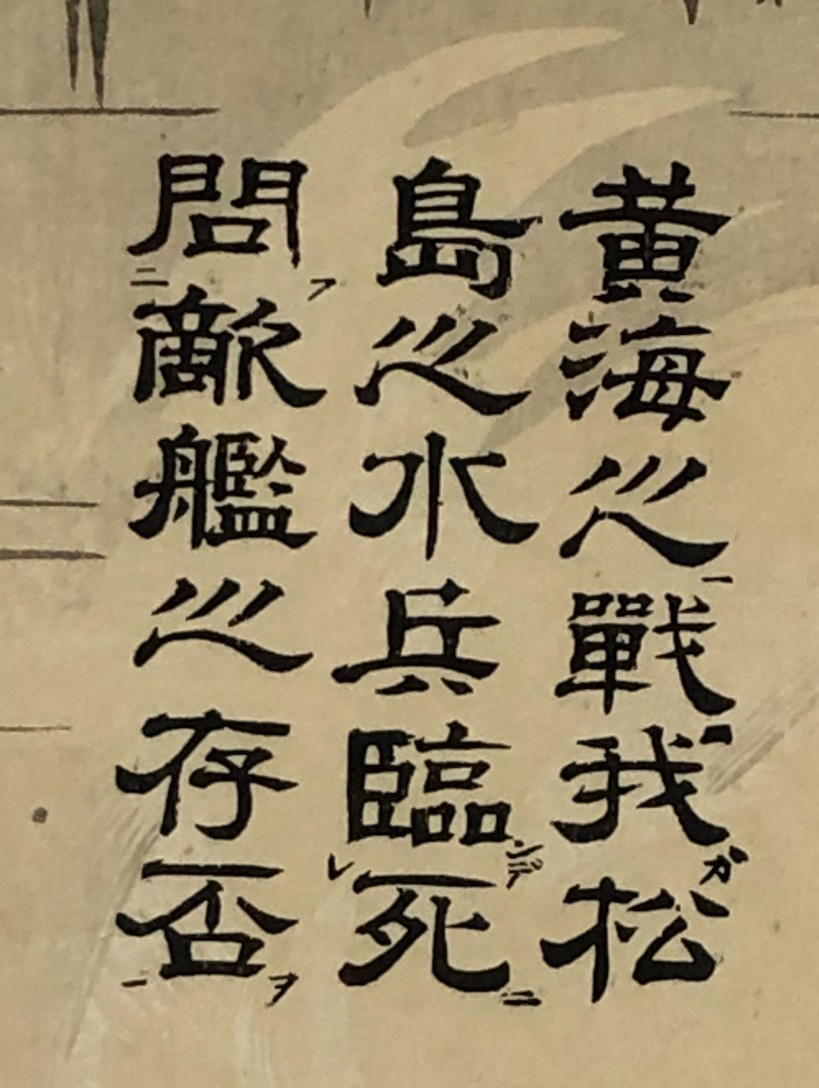 黄海之戰我松
島之水兵臨死
問敵艦之存否